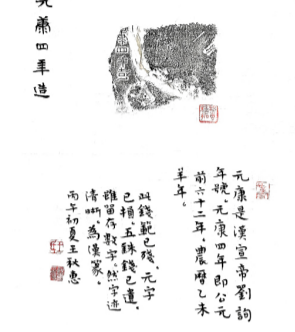 元康四年造
元康是漢宣帝劉詢
年號元康四年即公元
前六十二年，農曆乙未
羊年。
此錢範已殘，元字
已損五銖錢已遺，
雖留存數字，然字迹
清晰，為漢篆。
丙午初夏王秋惠